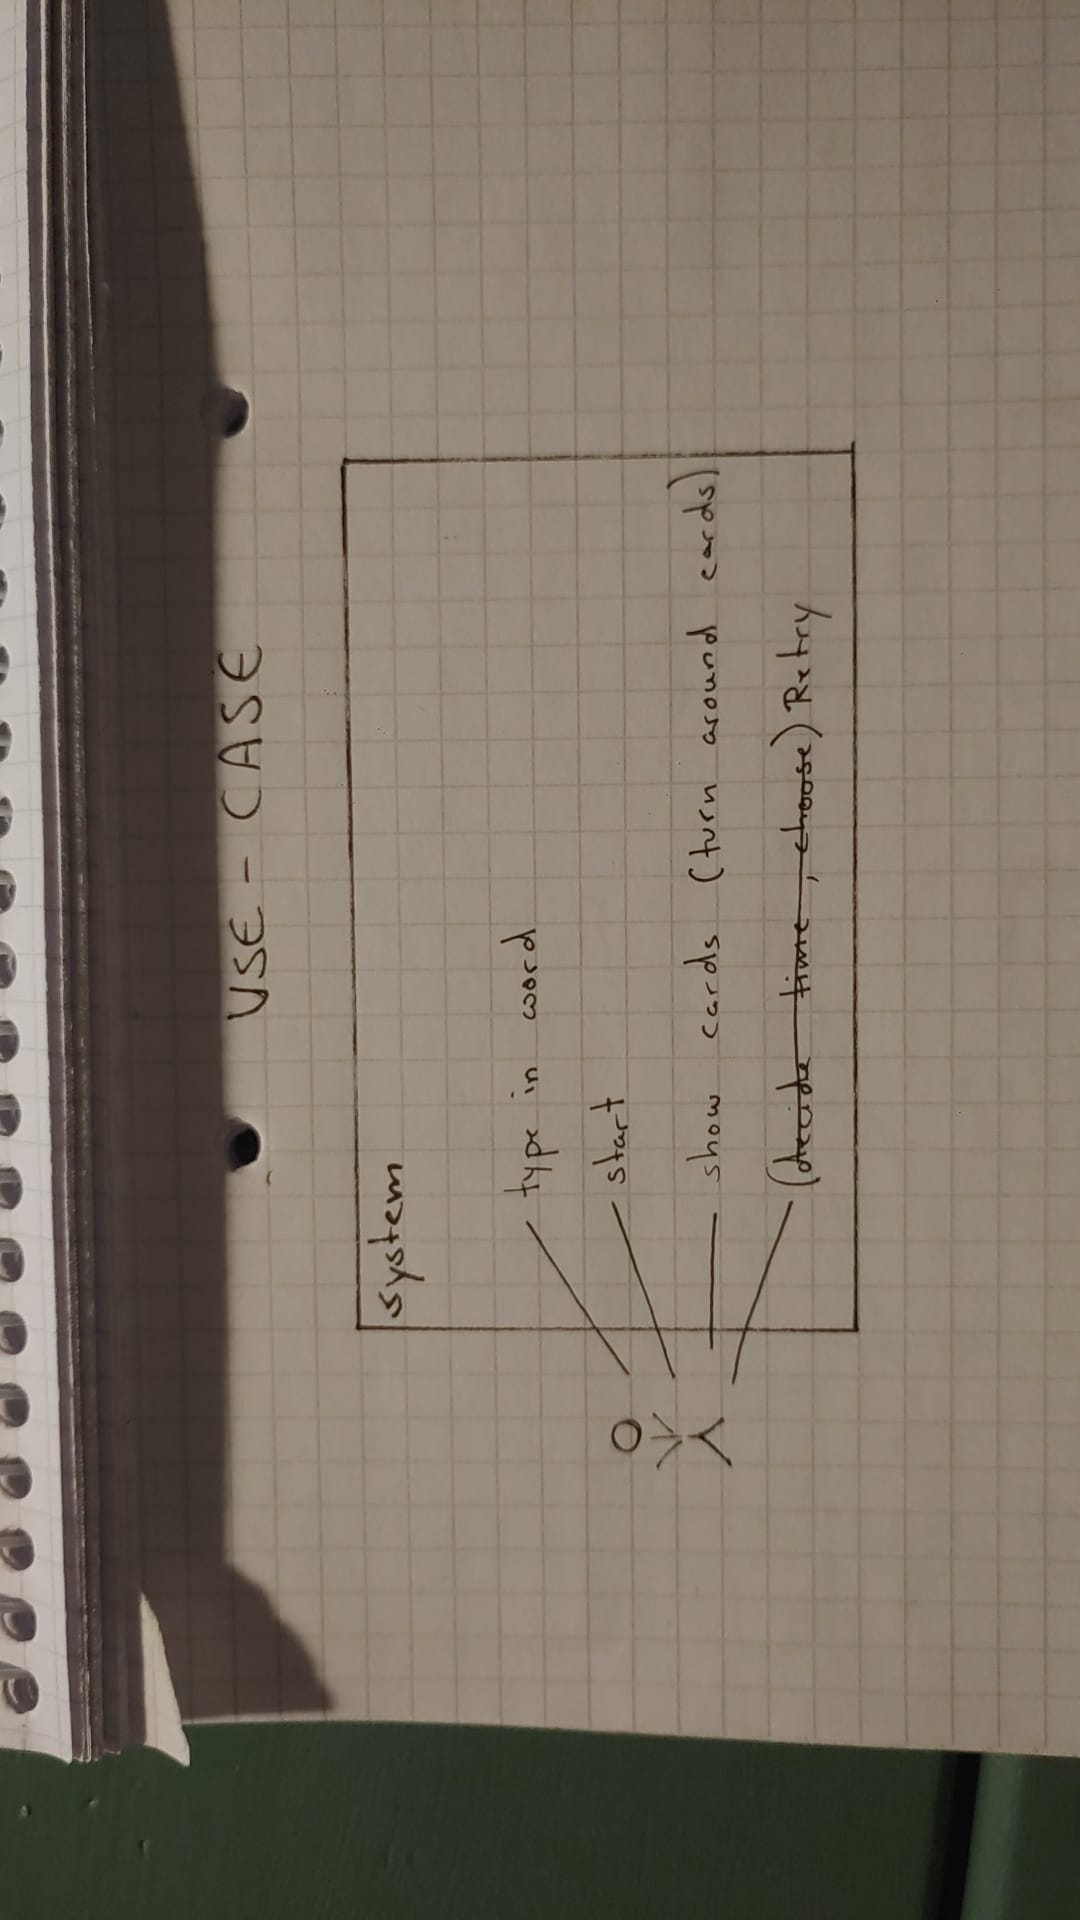 USE-CASE
System
type in word
start
show cards (turn around cards)
(decide time, choose) Retry